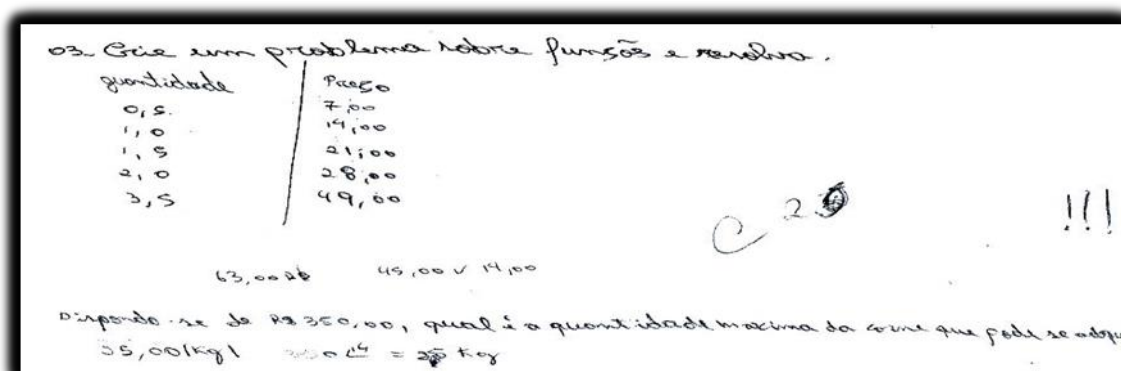 03- Crie um problema sobre funsões e resolva.
quantidade Preso
0,5 7,00
1,0 14,00
1,5 21,00
2,0 28,00
3,5 49,00
C 2
!!!
63,00 45,00 14,00
Dispondo-se de R$ 350,00, qual é a quantidade maxima da carne que pode se
35,00(Kg) = Kg